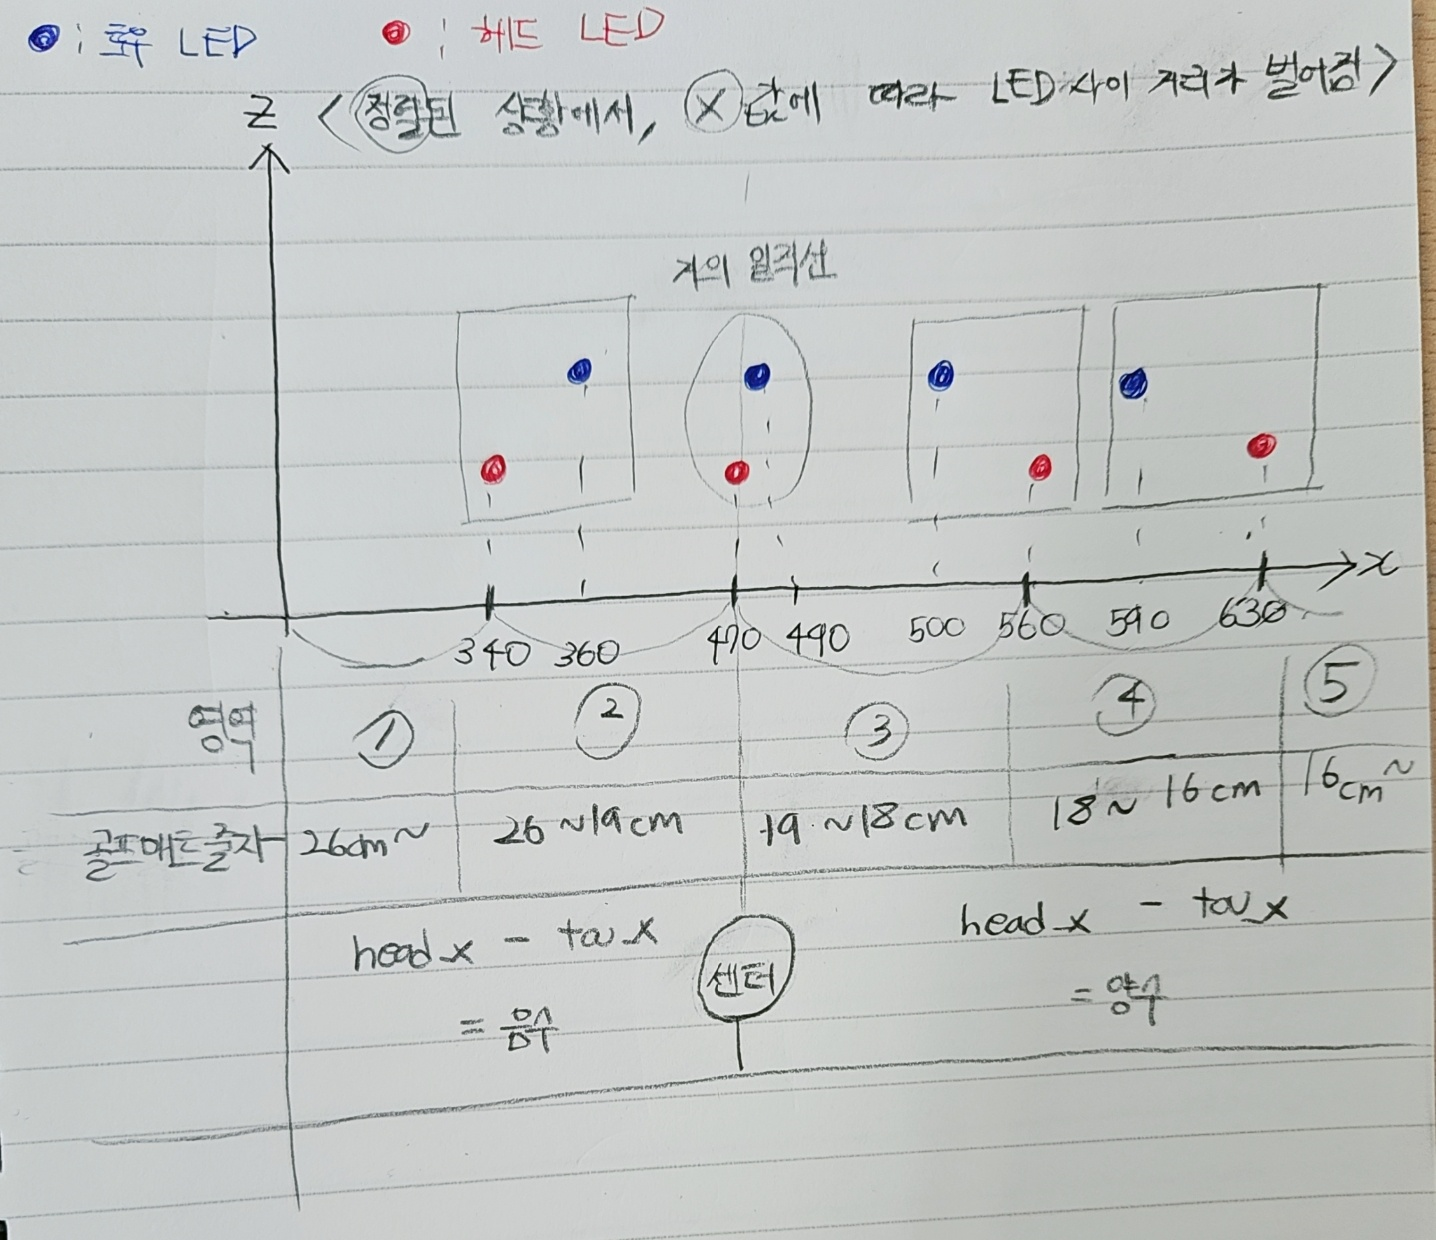 : 토우 LED : 헤드 LED
Z <정렬된 상황에서, X값에 따라 LED 사이 거리가 벌어짐>
거의 일직선
x
340 360 470 490 500 560 590 630
영역 ① ② ③ ④ ⑤
골프매트 줄자 26cm~ 26 ~19cm 19 ~18cm 18~ 16cm 16cm~
head_x - tou_x 센터 head_x - tou_x
= 음수 = 양수